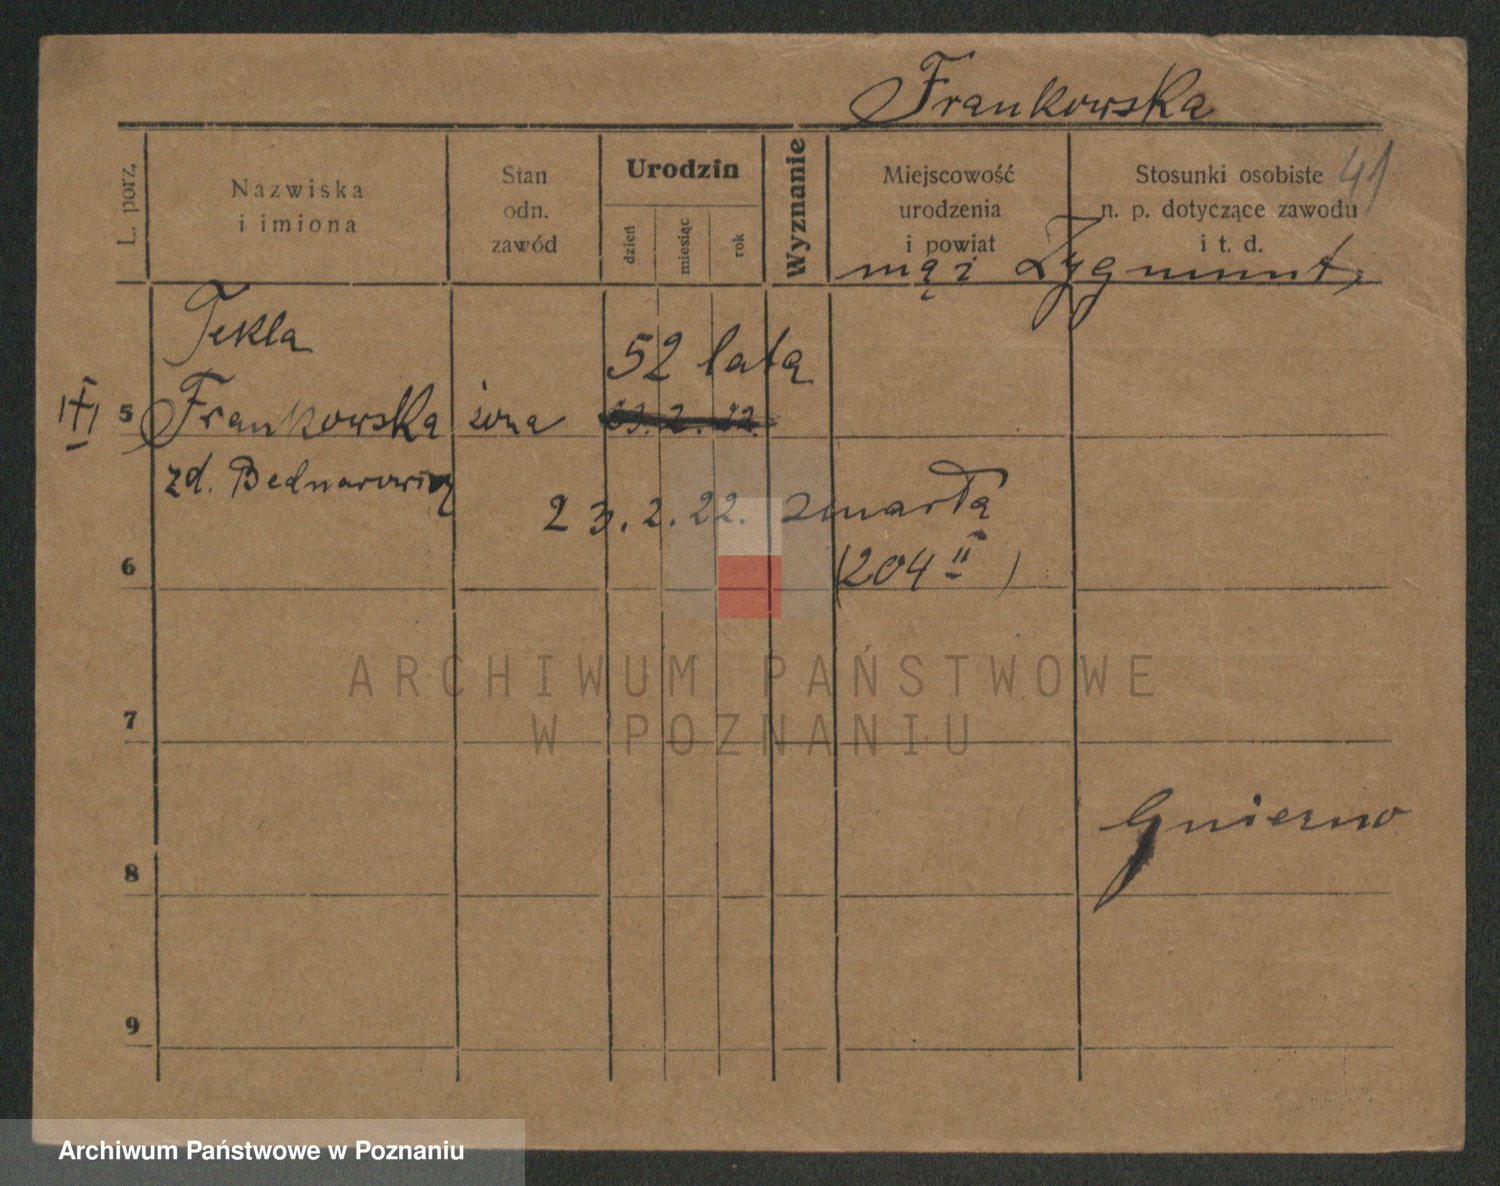 Frankowska
41
L. porz.
Nazwiska
i imiona
Stan
odn.
zawód
Urodzin
dzień
miesiąc
rok
Wyznanie
Miejscowość
urodzenia
i powiat
Stosunki osobiste
n. p. dotyczące zawodu
i t. d.
mąż Zygmunt,
Tekla
52 lata
5 Frankowska żona 23. 2. 22.
zd. Bednarowicz
23. 2. 22. zmarła
6
(204 II)
ARCHIWUM PAŃSTWOWE
W POZNANIU
7
Gniezno
8
9
Archiwum Państwowe w Poznaniu